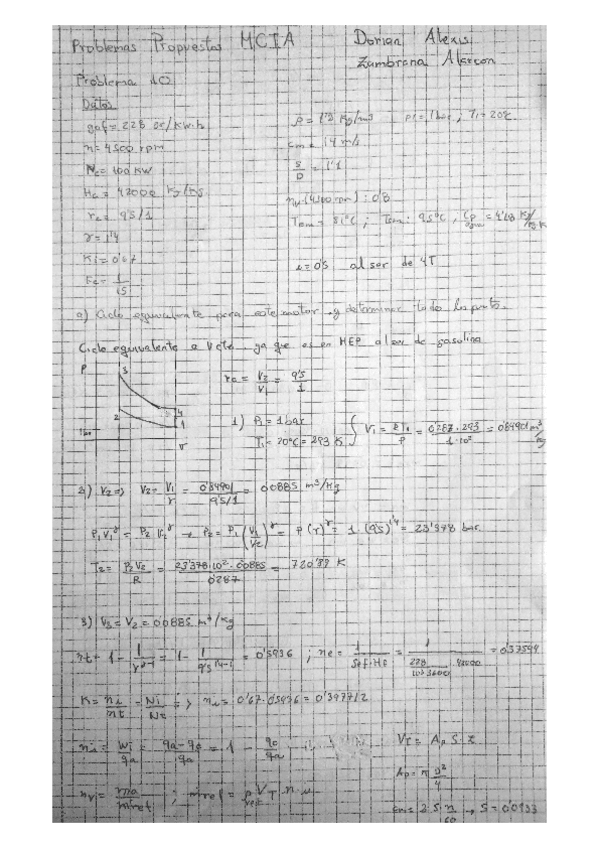 Problemas Propuestos MCIA
Dorian Alexis
Zambrana Alarcon
Problema 10
Datos
gef = 228 gr/kW.h
n = 4500 rpm
Ne = 100 KW
Hc = 42000 KJ/Kg
rc = 9'5/1
γ = 1'4
Ki = 0'67
Fe = 1/15
ρ = 1'2 Kg/m³ p1 = 1 bar ; T1 = 20ºC
cm = 14 m/s
S/D = 1'1
nv (4500 rpm) : 0'8
= 81ºC ; : 95ºC , Cp = 4'18 KJ/Kg K
u = 0'5 al ser de 4T
a) Ciclo equivalente para este motor y determinar todo los puntos.
Ciclo equivalente a V cte. ya que es en MEP al ser de gasolina
P 3 2 4 1 V
rc = V2/V1 = 9'5/1
1) P1 = 1 bar
T1 = 20ºC = 293 K
V1 = RT1/P = 0'287 · 293/1·10² = 0'84901 m³/kg
2) V2 => V2 = V1/r = 0'84901/9'5/1 = 0'0885 m³/Kg
P1V1^γ = P2V2^γ → P2 = P1 (V1/V2)^γ = P (r)^γ = 1 · (9'5)^1'4 = 23'378 bar
T2 = P2V2/R = 23'378·10²·0'0885/0'287 = 720'89 K
3) V3 = V2 = 0'0885 m³/kg
nt = 1 - 1/r^γ-1 = 1 - 1/9'5^1'4-1 = 0'5936 ; ne = 1/Gef·Hc = 1/228/10³·3600 · 42000 = 0'37594
K = ni/nt = Ni/Nt => ni = 0'67 · 0'5936 = 0'397712
ni = Wi/qa = qa - qo/qa = 1 - qo/qa
VT = Ap S · z
Ap = π D²/4
nv = ma/mref ; mref = ρref VT · n · u
cm = 2·S·n/60 → S = 0'0933